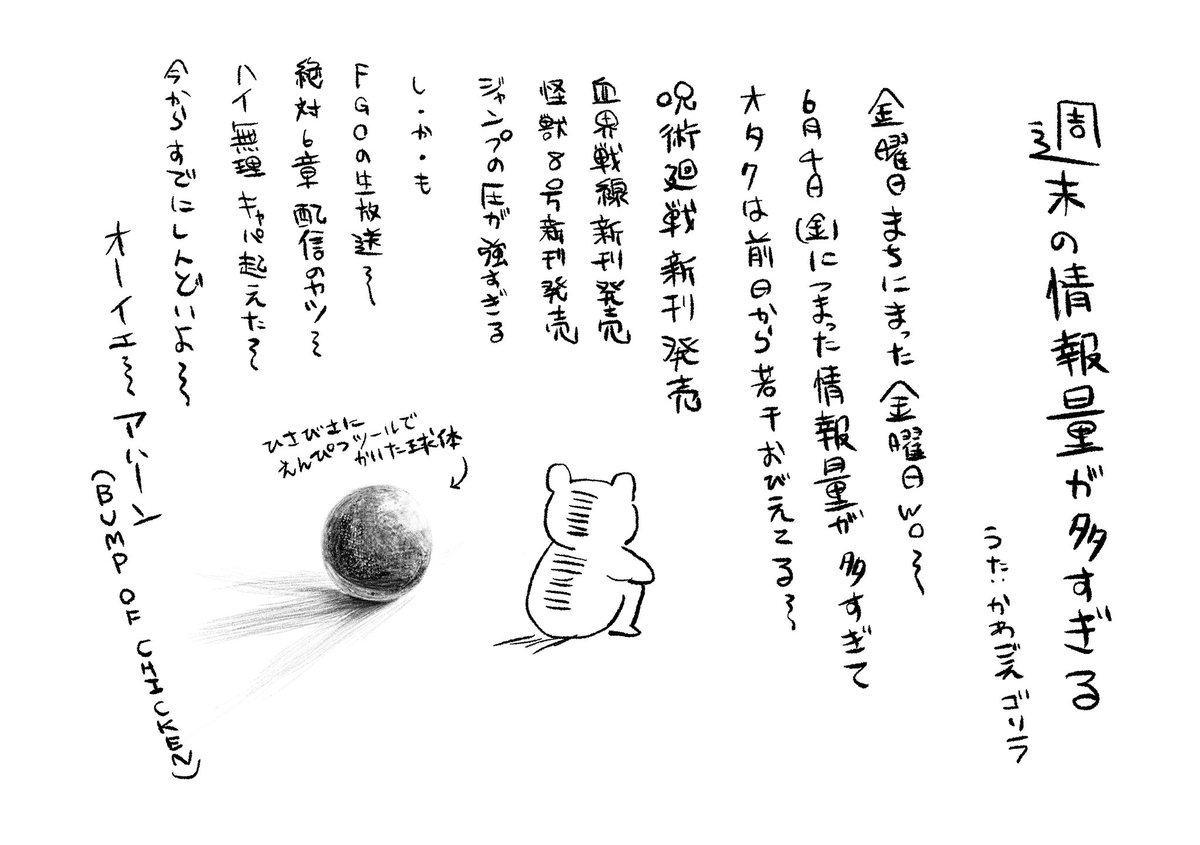 週末の情報量が多すぎる
うた:かわごえゴリラ
金曜日まちにまった金曜日wo〜
6月4日(金)につまった情報量が多すぎて
オタクは前日から若干おびえてる〜
呪術廻戦新刊発売
血界戦線新刊発売
怪獣8号新刊発売
ジャンプの圧が強すぎる
し・か・も
FGOの生放送〜
絶対6章配信のヤツ〜
ハイ無理キャパ超えた〜
今からすでにしんどいよ〜
オーイェ〜アハーン
(BUMP OF CHICKEN)
ひさびさに
えんぴつツールで
かいた球体